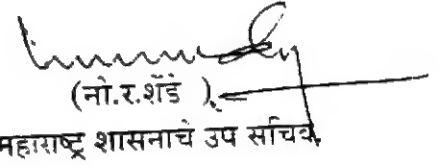 (नो.र.शेंडे )
महाराष्ट्र शासनाचे उप सचिव.